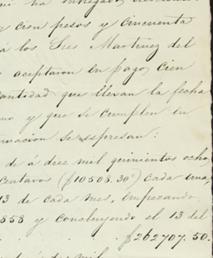 que ha entregado,
y cien pesos y Cincuenta
á los Sres Martinez del
aceptaron en pago, cien
cantidad que llevan la fecha
y que se cumplen en
macion se espresan:
de á diez mil quinientos ocho
Centavos ($10508.30) cada una,
13 de cada mes, empezando
858 y concluyendo el 13 del
$262707.50.